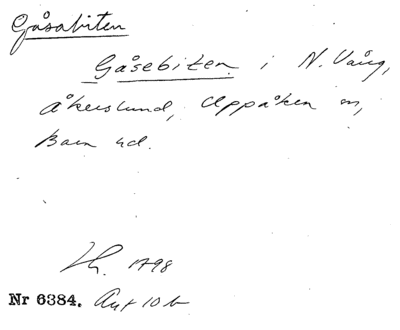 Gåsabiten
Gåsebiten i N. Vång,
Åkerslund, Uppåkra sn,
Bara hd.
Lh. 1798
Nr 6384. Avt 10 b